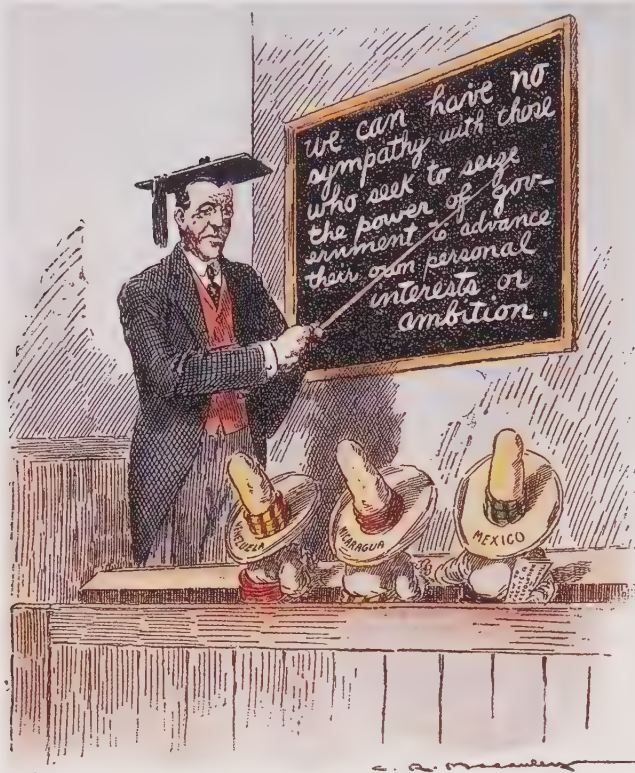 We can have no
sympathy with those
who seek to seize
the power of gov-
ernment to advance
their own personal
interests or
ambition.
NEZUELA
NICARAGUA
MEXICO
C. R. Macauley